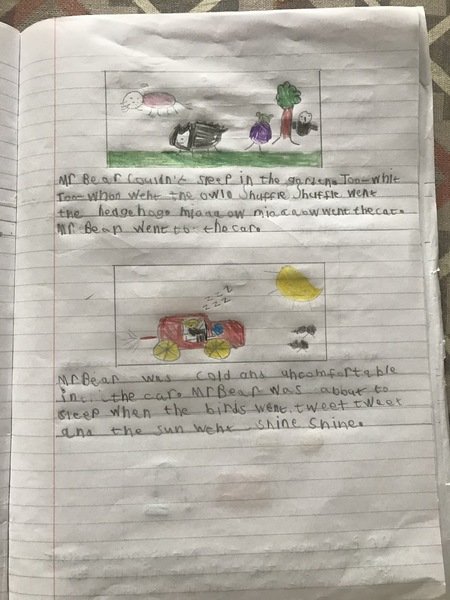 Mr Bear couldn't sleep in the garden. Too-whit
Too-whoo went the owl. Shuffle Shuffle went
the hedgehog. miaaaow miaaaow went the cat.
Mr Bear went to the car.
z z z
z z z
Mr Bear was cold and uncomfortable
in the car. Mr Bear was about to
sleep when the birds went tweet tweet
and the sun went shine shine.